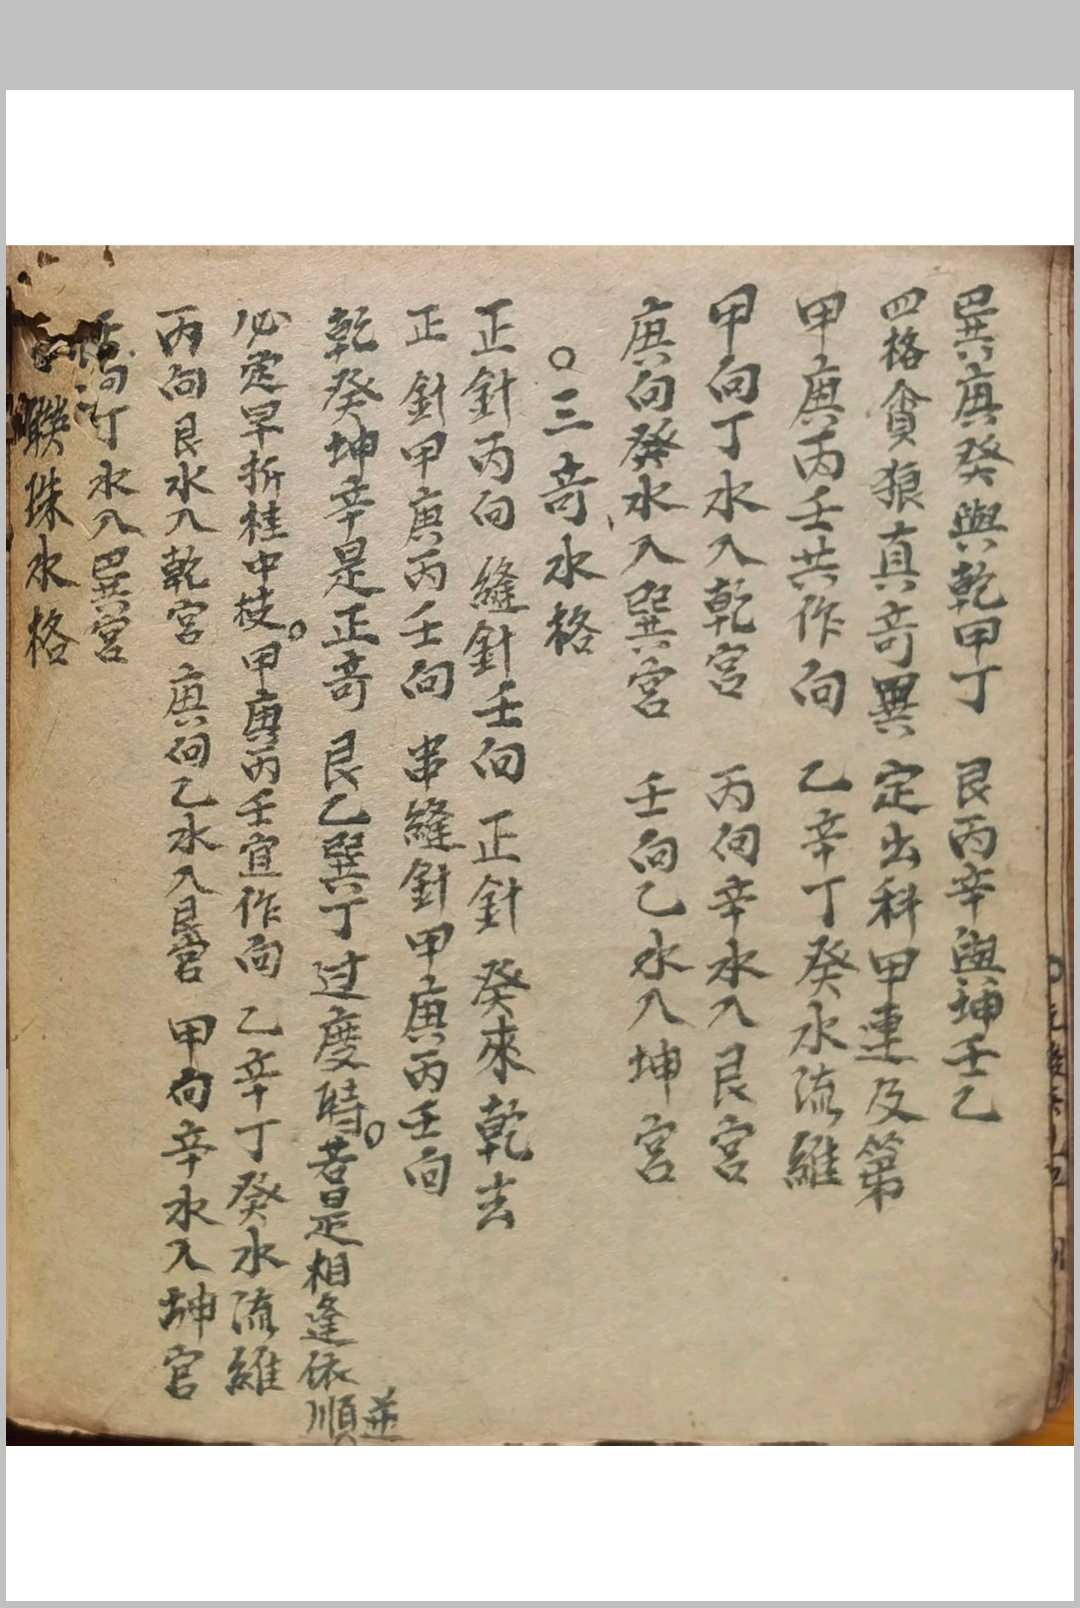 巽庚癸與乾甲丁　艮丙辛與坤壬乙
四格貪狼真竒異　定出科甲連及第
甲庚丙壬共作向　乙辛丁癸水流維
甲向丁水入乾宮　丙向辛水入艮宮
庚向癸水入巽宮　壬向乙水入坤宮
○三竒水格
正針丙向　縫針壬向　正針　癸來乾去
正針甲庚丙壬向　串縫針甲庚丙壬向
乾癸坤辛是正竒　艮乙巽丁过度時。若是相逢依順並
必定早折桂中枝。甲庚丙壬宜作向　乙辛丁癸水流維
丙向艮水入乾宮　庚向乙水入艮宮　甲向辛水入坤宮
向丁水入巽宮
聯珠水格